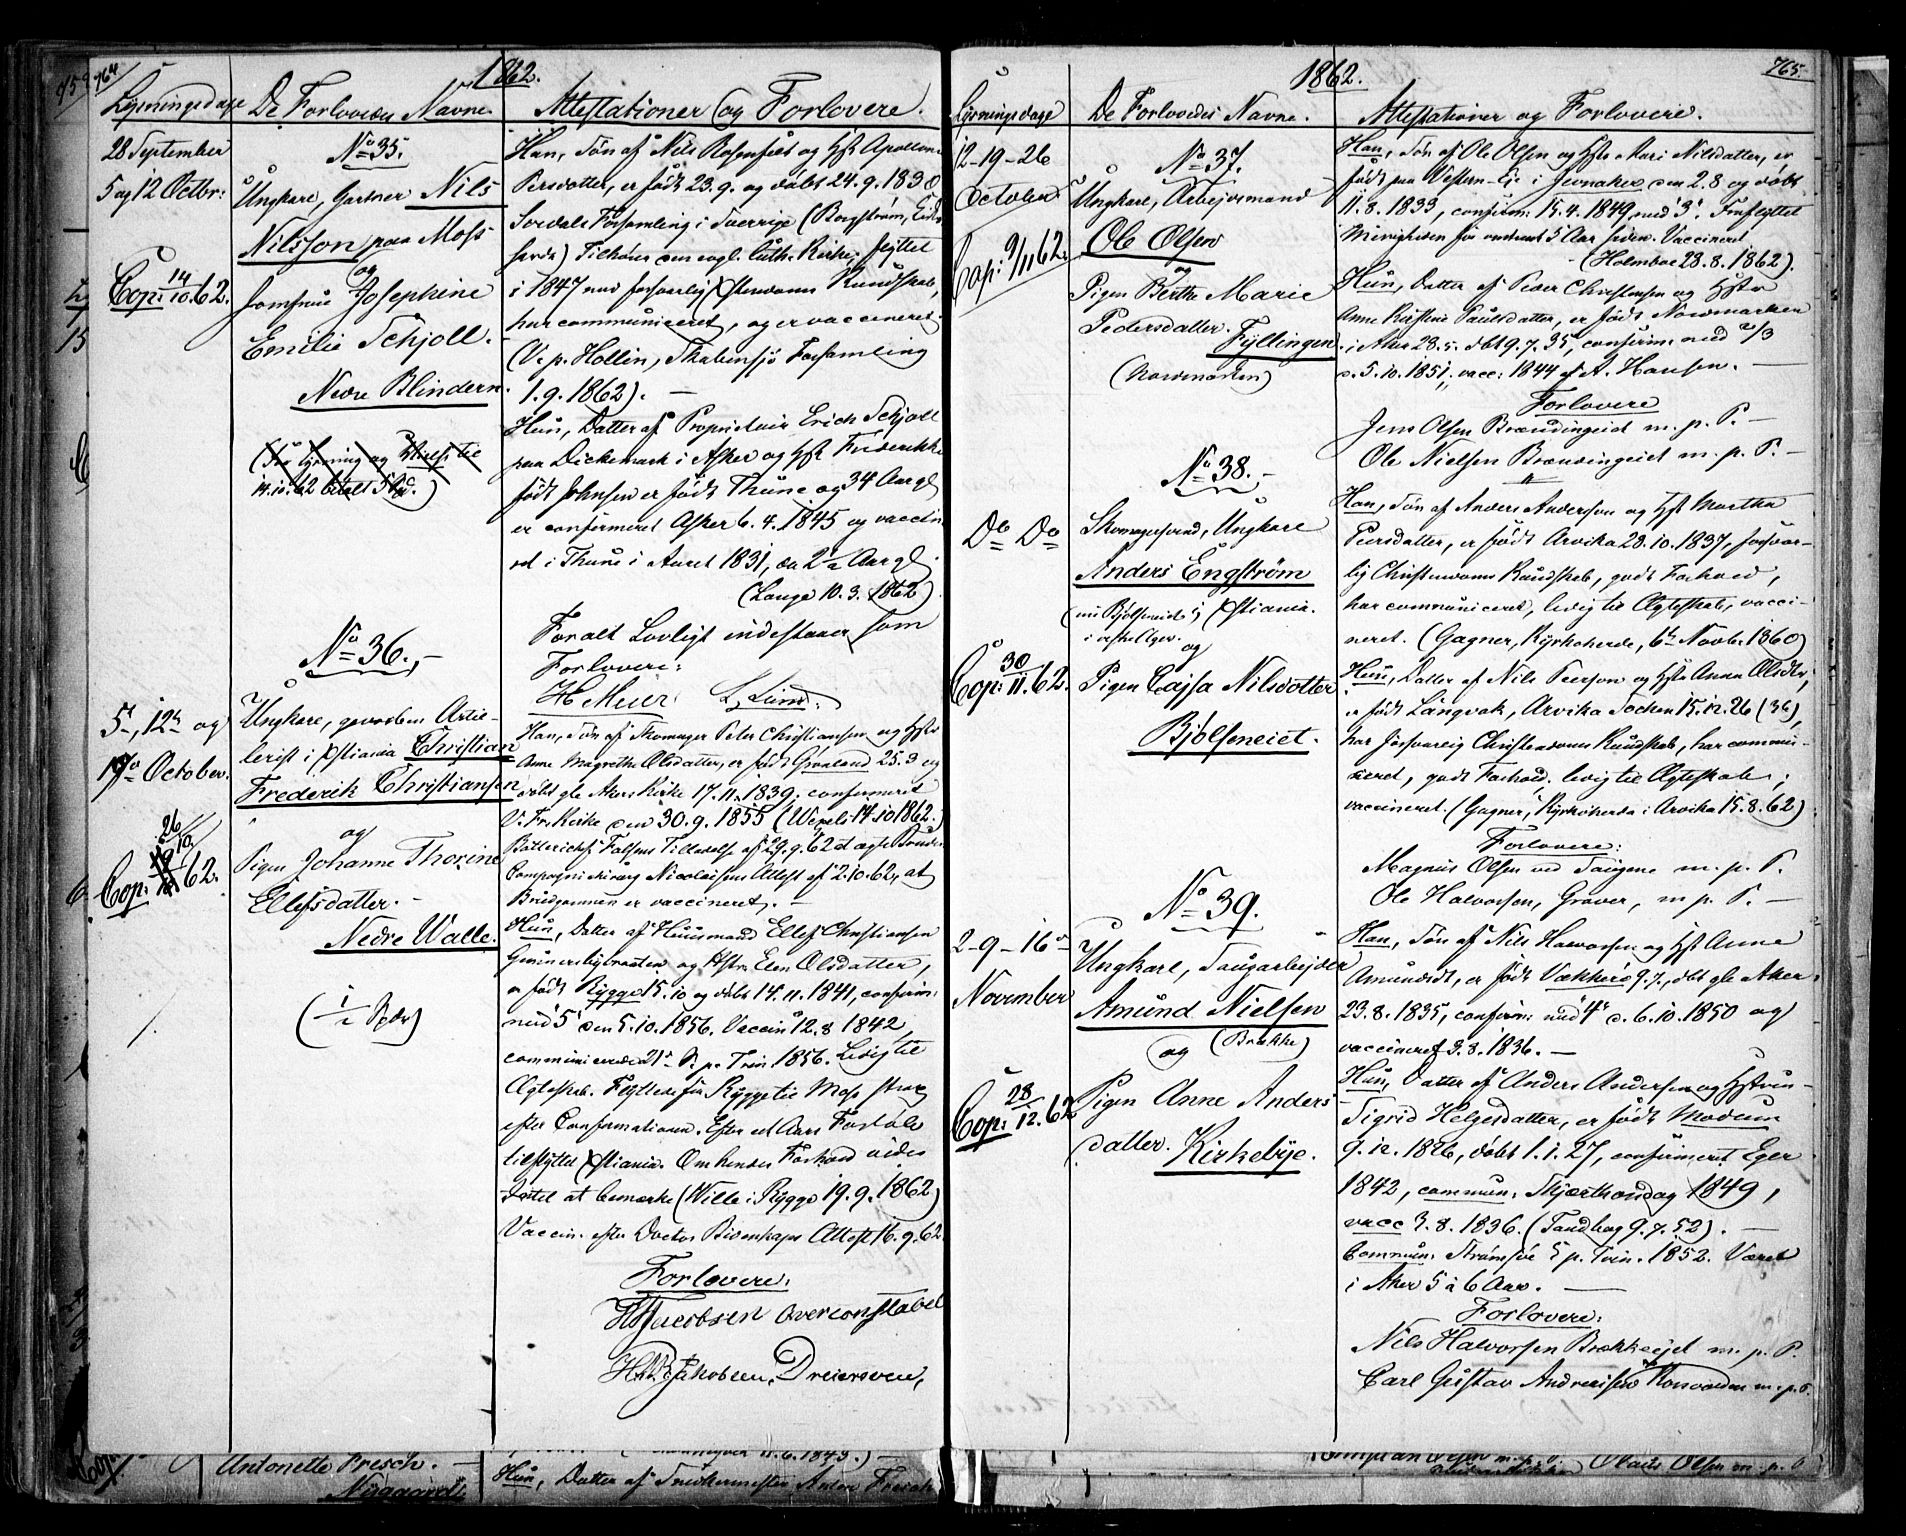 764
1862.
Lysningsdage
De Forlovedes Navne
Attestationer og Forlovere.
28 September
5 og 12 Octbr:
Cop: 14/10.62.
No 35.
Ungkarl, Gartner Nils
Nilsson paa Moss
og
Jomfrue Josephine
Emilie Schjoll.
Nedre Blindern.
(For Lysning og til
14.10.62 betalt 5 )
Han, Søn af Nils Rosenfelt og Hst Apollone
Persdatter, er født 23.9. og døbt 24.9.1830
Svedals Forsamling i Sverrige (Borgstrøm,
) Tilhører den evgl: luth. Kirke, flyttet
i 1847 med forsvarlig Xstendoms Kundskab,
har communiceret, og er vaccineret.
(V. p. Hollin, Forsamling
1.9.1862). —
Hun, Datter af Proprietair Erich Schjoll
paa Dickemark i Asker og Hst Frederikke
født Johnsen er født Thune og 34 Aar gl
er confirmeret Asker 6.4.1845 og vaccine-
ret i Thune i Aaret 1831, da 2½ Aar gl.
(Lange 10.3.1862)
For alt Lovligt indestaaer som
Forlovere:
H Meier. L. Lund.
No 36.
5te, 12te og
19de October.
Cop: 26/10 62.
Ungkarl, gevorben Artil-
lerist i Xstiania Christian
Frederik Christiansen
og
Pigen Johanne Thorine
Ellefsdatter.
Nedre Walle.
Han, Søn af Skomager Peter Christiansen og Hstr
Anne Magrethe Olsdatter, er født Grønland 25.9 og
døbt gle Akers Kirke 17.11.1839, confirmeret
V. Fr. Kirke den 30.9.1855 (Wexels 14.10.1862.)
Falsens Tilladelse af 29.9.62 at ægte Bruden
Nicolaisens Attest af 2.10.62, at
Brudgommen er vaccineret. —
Hun, Datter af Huusmand Ellef Christiansen
og Hstr. Elen Olsdatter,
er født Rygge 15.10 og døbt 14.11.1841, confirm:
med 5 den 5.10.1856. Vaccin 12.8 1842,
communicerede 21de S. p. Trin. 1856. Ledig til
Ægteskab. Flyttede fra Rygge til Moss strax
efter Confirmationen. Efter et Aars Forløb
tilflyttet Xstiania. Om hendes Forhold vides
Intet at bemærke (Wille i Rygge 19.9.1862)
Vaccin. efter Doctor Attest 16.9.62.
Forlovere:
H Jacobsen Overconstabel
Jakobsen, Dreiersven,
1862.
765.
Lysningsdage
De Forlovedes Navne.
Attestationer og Forlovere.
12-19-26
October
Cop: 9/11 62.
No 37.
Ungkarl, Arbejdsmand
Ole Olsen
og
Pigen Berthe Marie
Pedersdatter. Fyllingen
(Nordmarken)
Han, Søn af Ole Olsen og Hstr Mari Nilsdatter, er
født paa Vestern-Eje i Jevnaker den 2.8 og døbt
11.8.1833, confirm: 15.4.1849, med 3. Indflyttet
Menigheden for omtrent 5 Aar siden. Vaccineret
(Holmboe 28.8.1862).
Hun, Datter af Peder Christensen og Hstr
Anne Kirstine Paulsdatter, er født Nordmarken
i Aker 28.5. døbt 9.7.35, confirm: med 2/3
d. 5.10.1851, vacc: 1844 af A. Hansen. —
Forlovere
Jens Olsen Brændingeiet m. p. P. —
Ole Nielsen Brændingeiet m. p. P. —
No 38.
Do Do
Cop: 30/11.62.
Skomagersvend, Ungkarl
Anders Engstrøm
(nu Bjølseneiet) i Xstiania.
i vestre Aker.
og
Pigen Cajsa Nilsdotter
Bjølseneiet.
Han, Søn af Anders Anderson og Hst Martha
Persdatter, er født Arvika 28.10.1837, forsvar-
lig Christendoms Kundskab, godt Forhold,
har communiceret, ledig til Ægteskab, vacci-
neret. (Gagner, Kyrkoherde, 6te Novb. 1860)
Hun, Datter af Nils Peerson og Hstr Anna Olsdtr,
er født Långvak, Arvika Socken 15.12.26 (36),
har forsvarlig Christendoms Kundskab, har commu-
niceret, godt Forhold, ledig til Ægteskab,
vaccineret. (Gagner, Kyrkoherde i Arvika 15.8.62)
Forlovere:
Magnus Olsen ved Saugene m. p. P.
Ole Halvorsen, Graver, m. p. P. —
No 39.
2-9-16de
November
Cop: 28/12.62
Ungkarl, Saugarbejder
Amund Nielsen
og (Brække)
Pigen Anne Anders
datter. Kirkebye.
Han, Søn af Nils Halvorsen og Hst Anne
Amundsdt, er født Vækkerø 9.7., døbt gle Aker
23.8.1835, confirm: med 4r d. 6.10.1850 og
vaccineret 3.8.1836. —
Hun, Datter af Anders Andersen og Hstru
Sigrid Helgesdatter, er født Modum
9.12.1826, døbt 1.1.27, confirmeret Eger
1842, commun: Skjærthorsdag 1849,
vacc 3.8.1836. (Tandberg 9.7.52). —
Commun: Strømsøe 5 p. Trin. 1852. Været
i Aker 5 à 6 Aar. —
Forlovere:
Nils Halvorsen Brækkeejet m. p. P.
Carl Gustav Andreasen m. p. P.
Antonette Fresch. —
Nyggaard
11.6.1843.) —
Hun, Datter af Snedkermester Anton Fresch
Christian Olsen m. p. P.
Olaus Olsen m. p. P